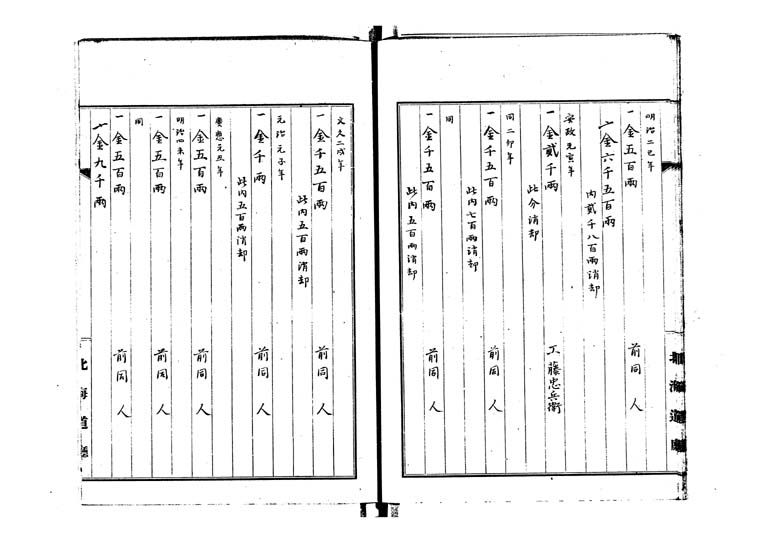 明治二巳年
一金五百両　前同人
〆金六千五百両
内貳千八百両消却
安政元寅年
一金貳千両　工藤忠兵衛
此分消却
同二卯年
一金千五百両　前同人
此内七百両消却
同
一金千五百両　前同人
此内五百両消却
北海道廳
文久二戌年
一金千五百両　前同人
此内五百両消却
元治元子年
一金千両　前同人
此内五百両消却
慶應元丑年
一金五百両　前同人
明治四未年
一金五百両　前同人
同
一金五百両　前同人
〆金九千両
北海道廳